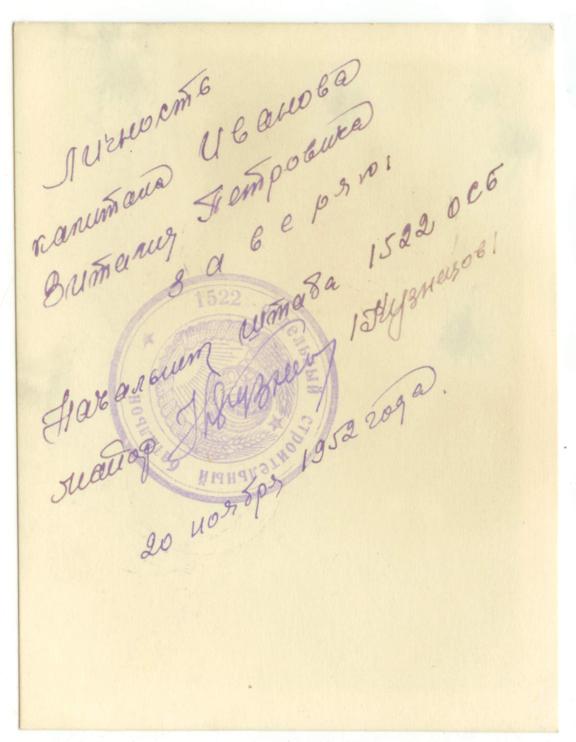 Личность
капитана Иванова
Виталия Петровича
заверяю:
Начальник штаба 1522 ОСБ
майор /Кузнецов/
20 ноября 1952 года.
1522 отдельный строительный батальон